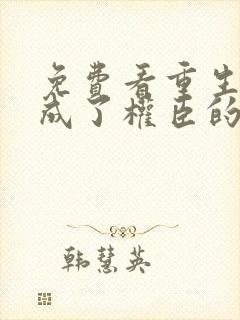 免費看重生
成了權臣的
韩慧英